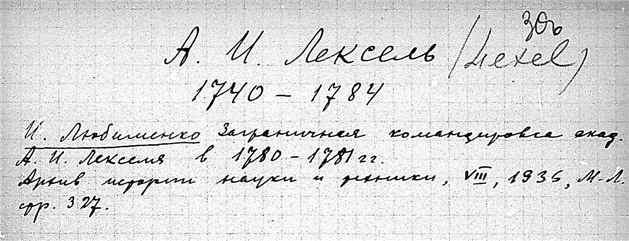 30ъ
А. И. Лексель (Lexel)
1740 – 1784
И. Любименко Заграничная командировка акад.
А. И. Лекселя в 1780–1781 гг.
Архив истории науки и техники, VIII, 1936, М-Л.
стр. 327.